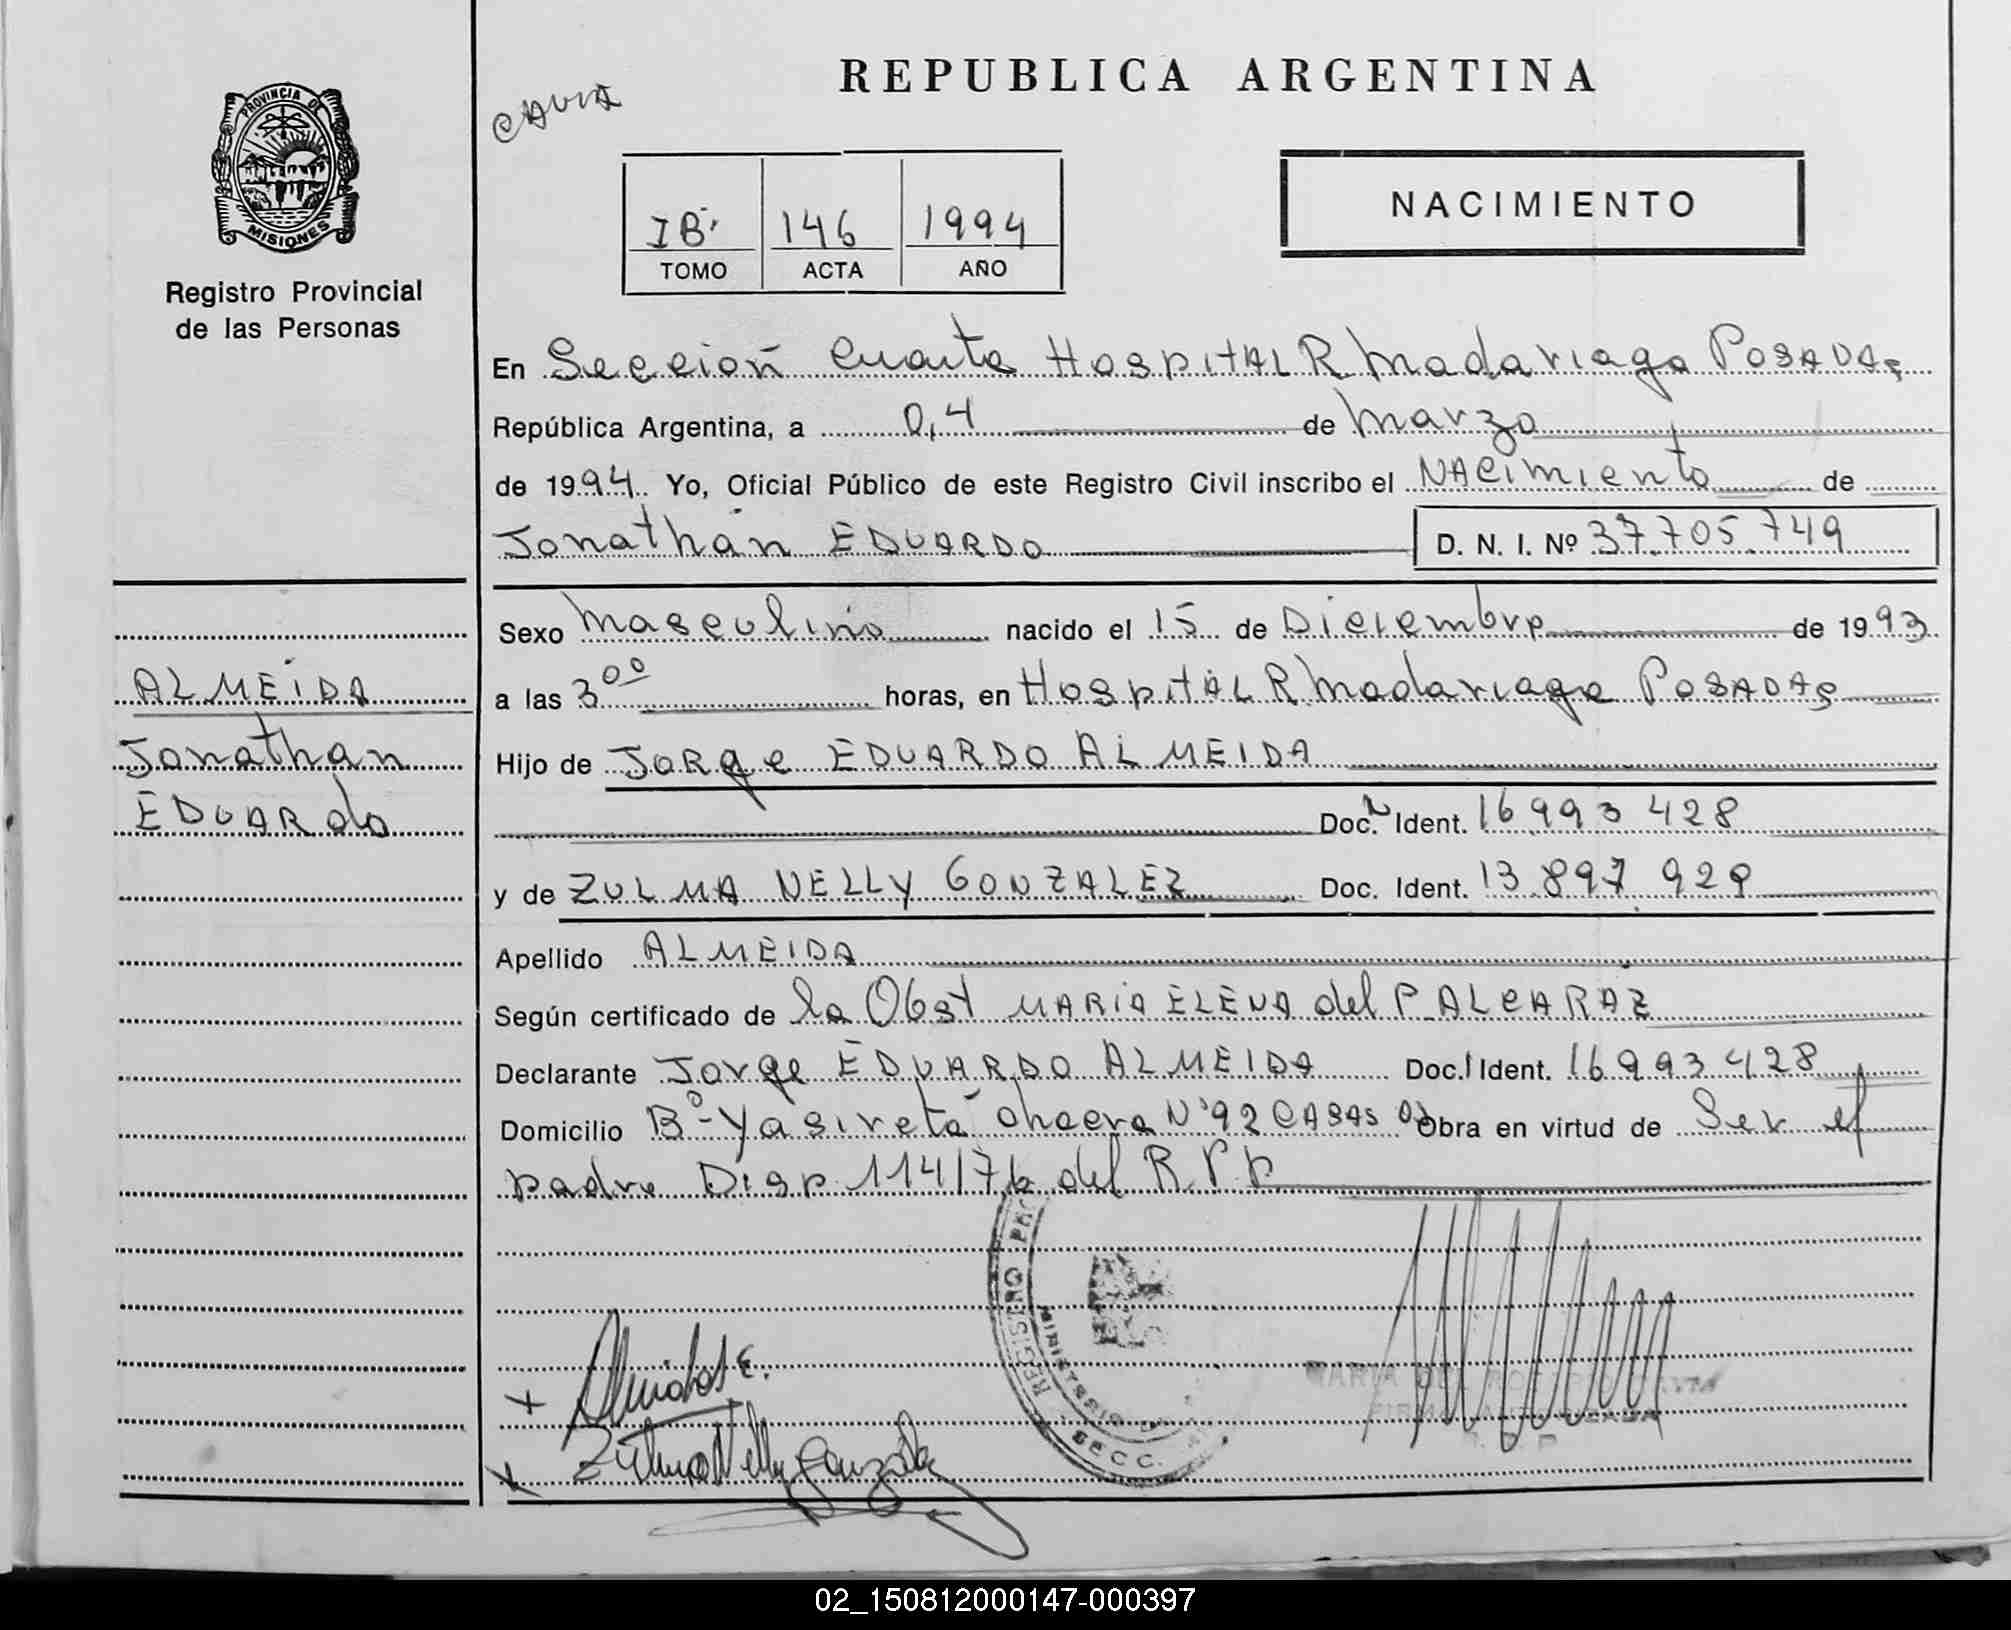 REPUBLICA ARGENTINA
CAVIA
PROVINCIA DE
MISIONES
Registro Provincial
de las Personas
IB' 146 1994
TOMO ACTA AÑO
NACIMIENTO
En Sección Cuarta Hospital R Madariaga Posadas
República Argentina, a 04 de Marzo
de 1994. Yo, Oficial Público de este Registro Civil inscribo el Nacimiento de
Jonathan EDUARDO D. N. I. Nº 37.705.749
Sexo Masculino nacido el 15 de Diciembre de 1993
ALMEIDA
a las 3⁰⁰ horas, en Hospital R Madariaga Posadas
Jonathan
Hijo de Jorge EDUARDO ALMEIDA
EDUARdo
Doc. Ident. 16 993 428
y de ZULMA NELLY GONZALEZ Doc. Ident. 13.897 929
Apellido ALMEIDA
Según certificado de la Obst MARIA ELENA del P ALCARAZ
Declarante Jorge EDUARDO ALMEIDA Doc. Ident. 16 993 428
Domicilio Bº Yasiretá chacra Nº 92 CASAS Obra en virtud de Ser el
padre Disp 114/76 del R.P.P
REGISTRO PRO
MINISTERIO DE
SECC.
Almeida J E.
Zulma Nelly González
MARIA DEL ROSARIO CAVIA
FIRMA AUTORIZADA
02_150812000147-000397